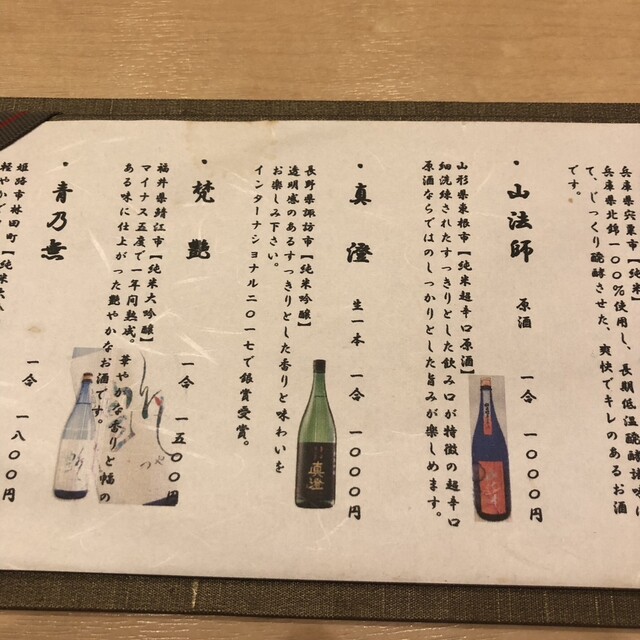 兵庫県宍粟市【純米】
兵庫県北錦一〇〇％使用し、長期低温醗酵
て、じっくり醗酵させた、爽快でキレのあるお酒
です。
・山法師 原酒 一合 一〇〇〇円
山形県東根市【純米超辛口原酒】
細洗練されたすっきりとした飲み口が特徴の超辛口
原酒ならではのしっかりとした旨みが楽しめます。
・真澄 生一本 一合 一〇〇〇円
長野県諏訪市【純米吟醸】
透明感のあるすっきりとした香りと味わいを
お楽しみ下さい。
インターナショナル二〇一七で銀賞受賞。
真澄
・梵 艶 一合 一五〇〇円
福井県鯖江市【純米大吟醸】
マイナス五度で一年間熟成。華やかな香りと幅の
ある味に仕上がった艶やかなお酒です。
つや
・青乃無 一合 一八〇〇円
姫路市林田町【純米大
軽やかで